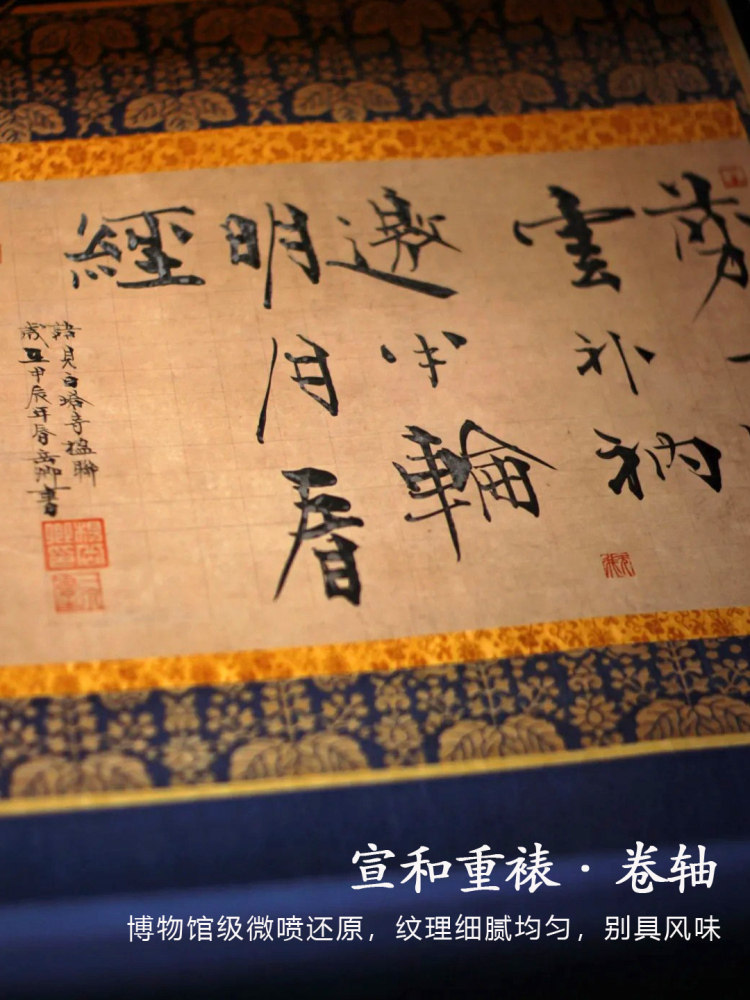 雲补衲
邀半輪
明月看
經
語見白塔寺楹聯
歲在甲辰年春岳卿書
宣和重裱·卷轴
博物馆级微喷还原，纹理细腻均匀，别具风味